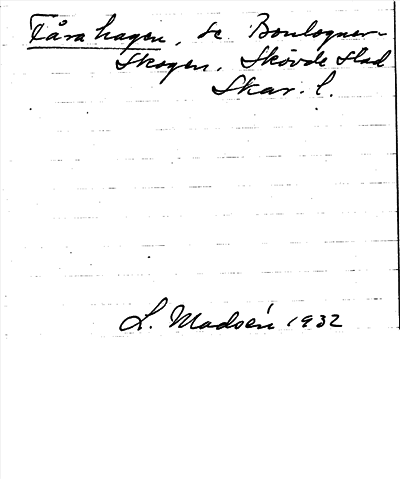 Tårahagen, se Boulogner-
skogen, Skövde stad
Skar. l.
L. Madsén 1932